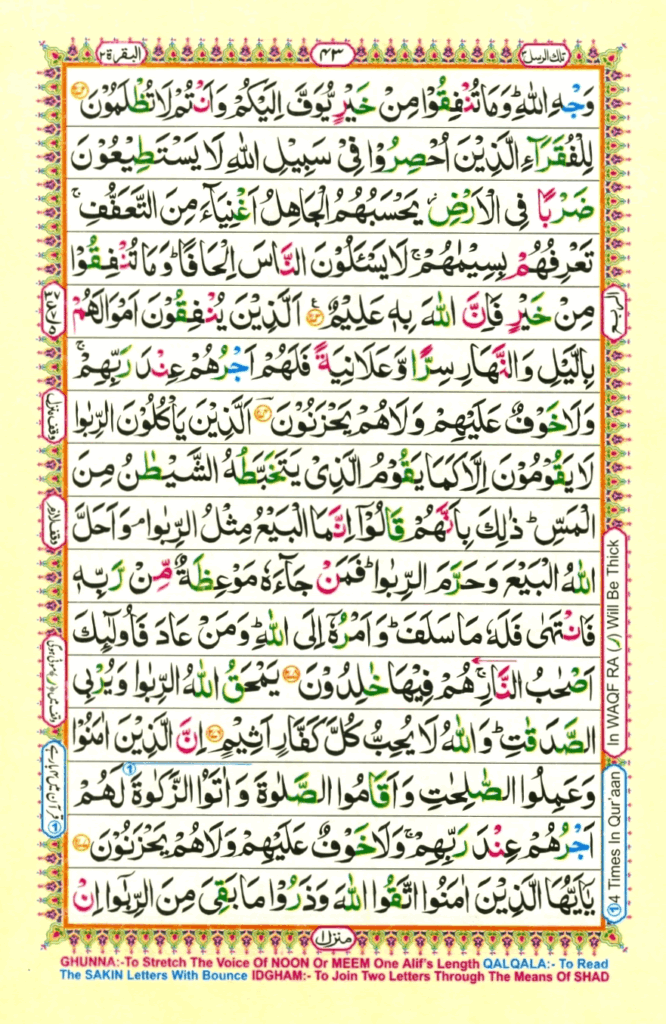 تلك الرسل ٣
٤٣
البقرة ٢
وَجْهِ اللّٰهِ ؕ وَمَا تُنْفِقُوْا مِنْ خَيْرٍ يُّوَفَّ اِلَيْكُمْ وَاَنْتُمْ لَا تُظْلَمُوْنَ
لِلْفُقَرَآءِ الَّذِيْنَ اُحْصِرُوْا فِىْ سَبِيْلِ اللّٰهِ لَا يَسْتَطِيْعُوْنَ
ضَرْبًا فِى الْاَرْضِ ؗ يَحْسَبُهُمُ الْجَاهِلُ اَغْنِيَآءَ مِنَ التَّعَفُّفِ ۚ
تَعْرِفُهُمْ بِسِيْمٰهُمْ ۚ لَا يَسْـَٔلُوْنَ النَّاسَ اِلْحَافًا ؕ وَمَا تُنْفِقُوْا
مِنْ خَيْرٍ فَاِنَّ اللّٰهَ بِهٖ عَلِيْمٌ اَلَّذِيْنَ يُنْفِقُوْنَ اَمْوَالَهُمْ
بِالَّيْلِ وَالنَّهَارِ سِرًّا وَّعَلَانِيَةً فَلَهُمْ اَجْرُهُمْ عِنْدَ رَبِّهِمْ ۚ
وَلَا خَوْفٌ عَلَيْهِمْ وَلَا هُمْ يَحْزَنُوْنَ اَلَّذِيْنَ يَاْكُلُوْنَ الرِّبٰوا
لَا يَقُوْمُوْنَ اِلَّا كَمَا يَقُوْمُ الَّذِىْ يَتَخَبَّطُهُ الشَّيْطٰنُ مِنَ
الْمَسِّ ؕ ذٰلِكَ بِاَنَّهُمْ قَالُوْۤا اِنَّمَا الْبَيْعُ مِثْلُ الرِّبٰوا ۘ وَاَحَلَّ
اللّٰهُ الْبَيْعَ وَحَرَّمَ الرِّبٰوا ؕ فَمَنْ جَآءَهٗ مَوْعِظَةٌ مِّنْ رَّبِّهٖ
فَانْتَهٰى فَلَهٗ مَا سَلَفَ ؕ وَاَمْرُهٗۤ اِلَى اللّٰهِ ؕ وَمَنْ عَادَ فَاُولٰٓئِكَ
اَصْحٰبُ النَّارِ ۚ هُمْ فِيْهَا خٰلِدُوْنَ يَمْحَقُ اللّٰهُ الرِّبٰوا وَيُرْبِى
الصَّدَقٰتِ ؕ وَاللّٰهُ لَا يُحِبُّ كُلَّ كَفَّارٍ اَثِيْمٍ اِنَّ الَّذِيْنَ اٰمَنُوْا
وَعَمِلُوا الصّٰلِحٰتِ وَاَقَامُوا الصَّلٰوةَ وَاٰتَوُا الزَّكٰوةَ لَهُمْ
اَجْرُهُمْ عِنْدَ رَبِّهِمْ ۚ وَلَا خَوْفٌ عَلَيْهِمْ وَلَا هُمْ يَحْزَنُوْنَ
يٰۤاَيُّهَا الَّذِيْنَ اٰمَنُوا اتَّقُوا اللّٰهَ وَذَرُوْا مَا بَقِىَ مِنَ الرِّبٰۤوا اِنْ
In WAQF RA (ر) Will Be Thick
①4 Times In Qur'aan
منزل ١
GHUNNA:-To Stretch The Voice Of NOON Or MEEM One Alif's Length QALQALA:- To Read
The SAKIN Letters With Bounce IDGHAM:- To Join Two Letters Through The Means Of SHAD